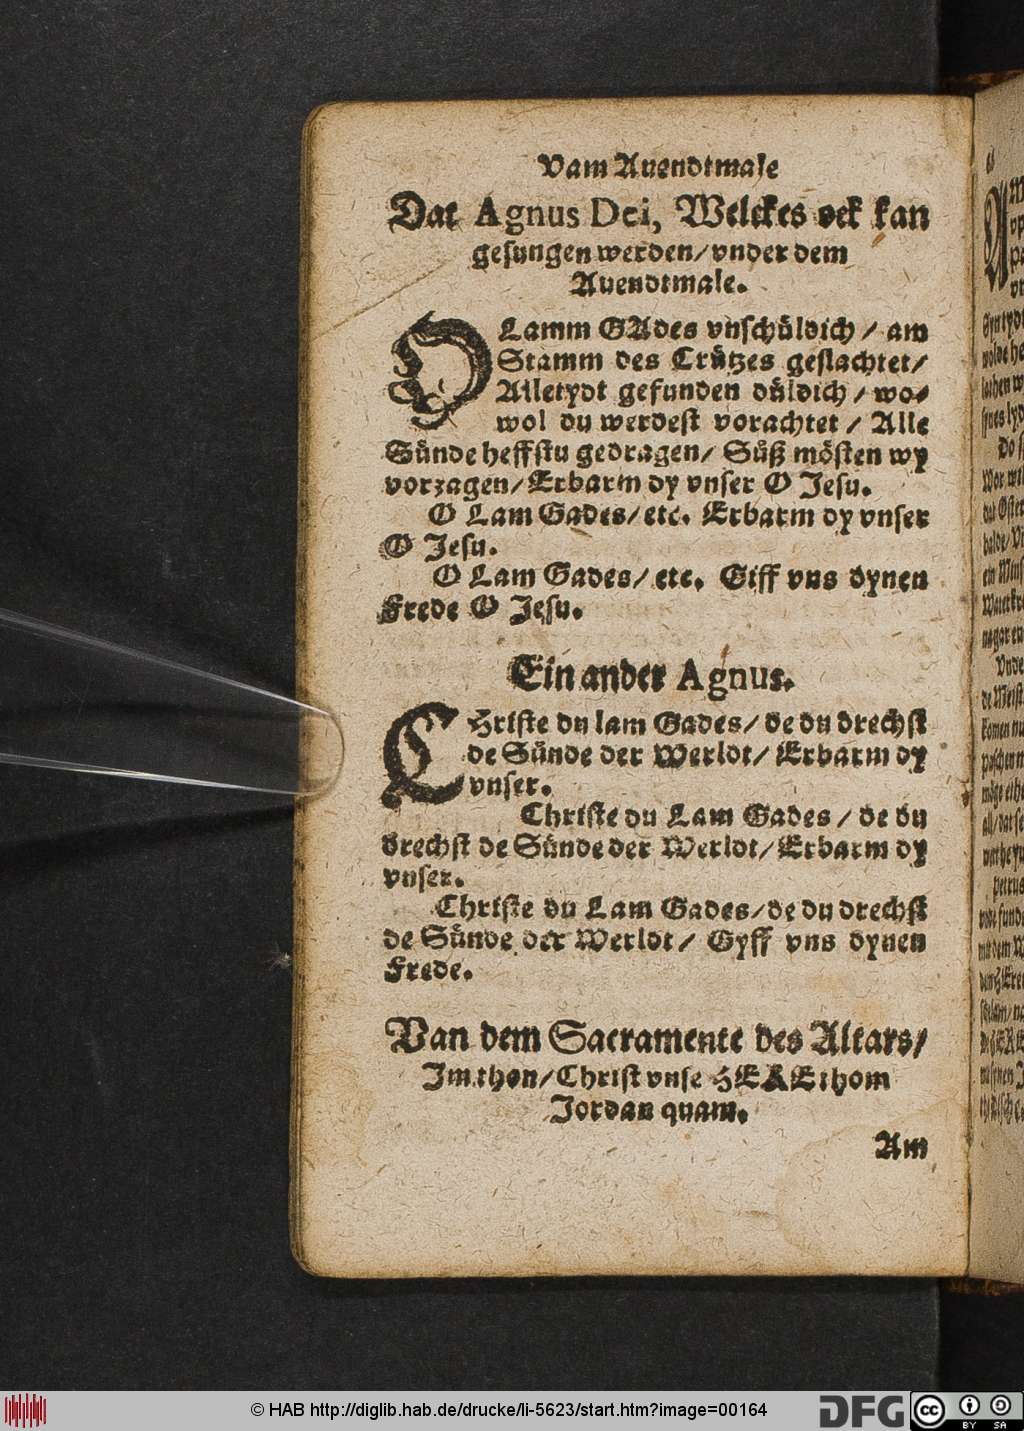 Vam Auendtmale
Dat Agnus Dei, Welckes ock kan
gesungen werden/vnder dem
Auendtmale.
O Lamm GAdes vnschüldich / am
Stamm des Crützes geslachtet/
Alletydt gefunden düldich / wo-
wol du werdest vorachtet / Alle
Sünde heffstu gedragen/ Süß mösten wy
vorzagen/Erbarm dy vnser O Jesu.
O Lam Gades/etc. Erbarm dy vnser
O Jesu.
O Lam Gades/ etc. Giff vns dynen
Frede O Jesu.
Ein ander Agnus.
CHriste du lam Gades/ de du drechst
de Sünde der Werldt/ Erbarm dy
vnser.
Christe du Lam Gades / de du
drechst de Sünde der Werldt/ Erbarm dy
vnser.
Christe du Lam Gades/de du drechst
de Sünde der Werldt/ Gyff vns dynen
Frede.
Van dem Sacramente des Altars/
Jm thon/Christ vnse HERE thom
Jordan quam.
Am
© HAB http://diglib.hab.de/drucke/li-5623/start.htm?image=00164
DFG
cc
BY SA